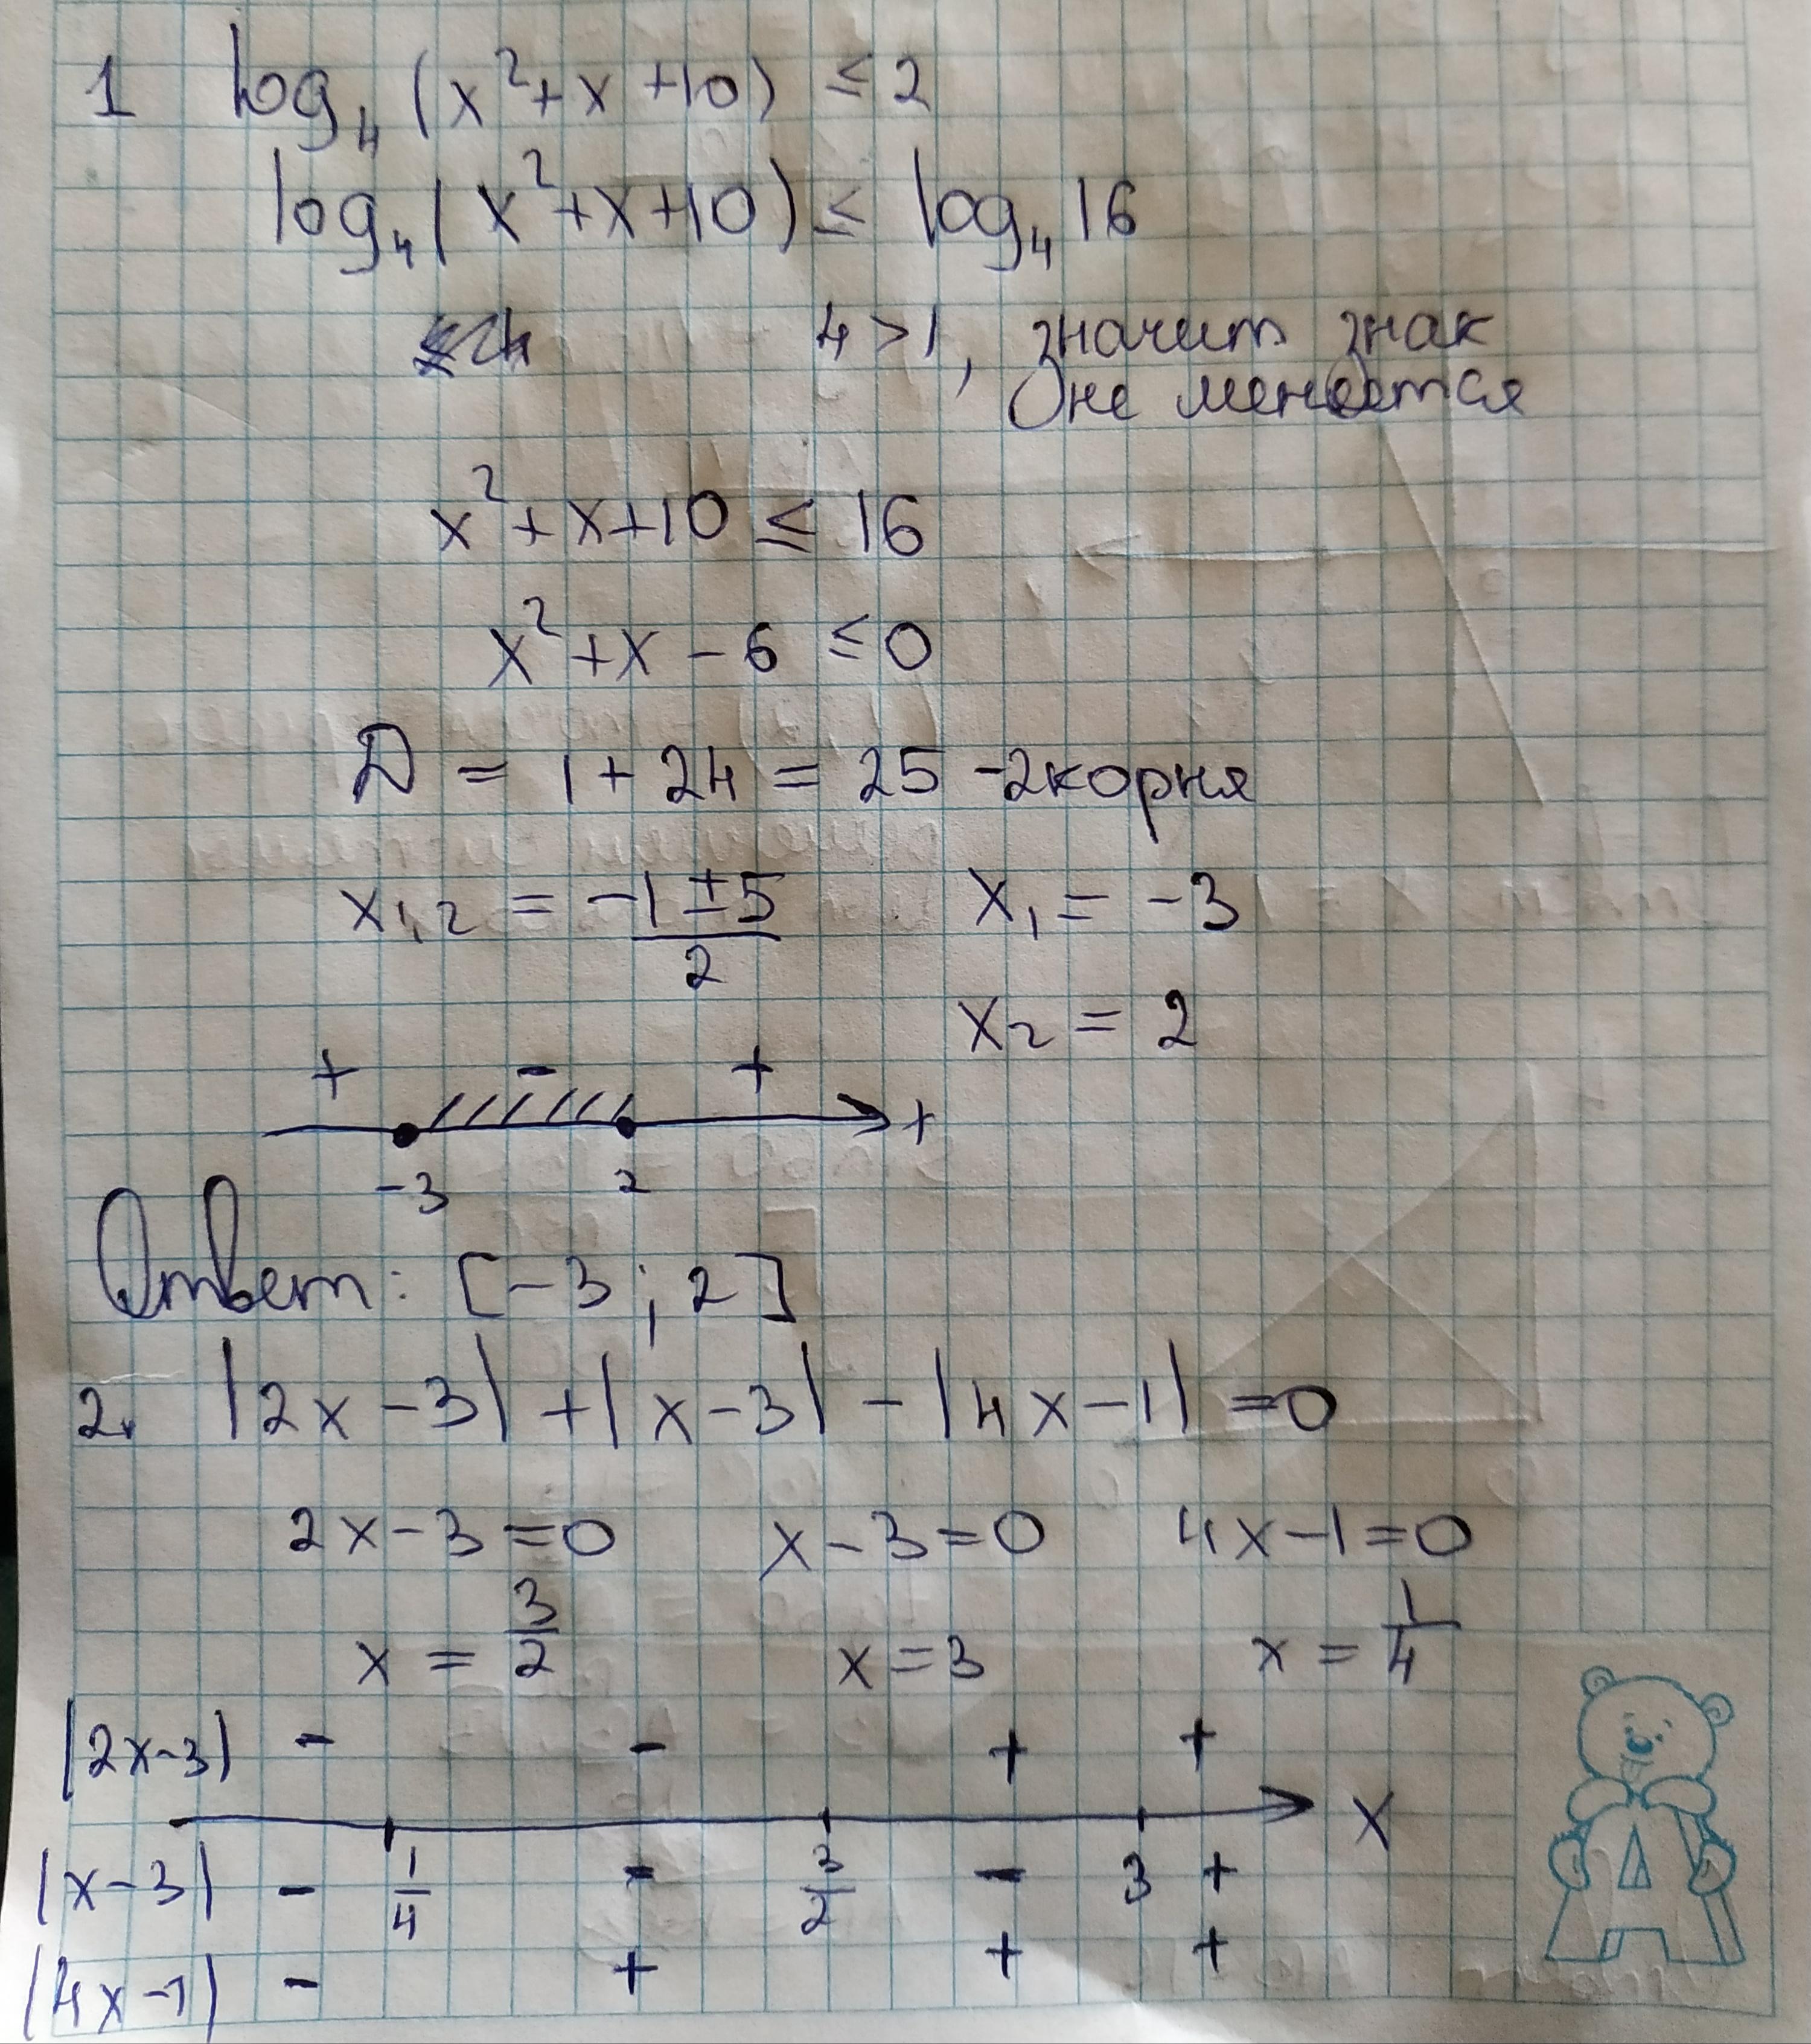 1 log₄ (x²+x+10) ≤ 2
log₄ (x²+x+10) ≤ log₄ 16
4 > 1, значит знак
не меняется
x²+x+10 ≤ 16
x²+x-6 ≤ 0
D = 1+24 = 25 -2корня
x₁,₂ = (-1±5)/2 x₁ = -3
x₂ = 2
+ - + +
-3 2
Ответ: [-3; 2]
2. |2x-3|+|x-3|-|4x-1|=0
2x-3=0 x-3=0 4x-1=0
x = 3/2 x=3 x = 1/4
|2x-3| - - + +
x
|x-3| - 1/4 - 3/2 - 3 +
|4x-1| - + + +